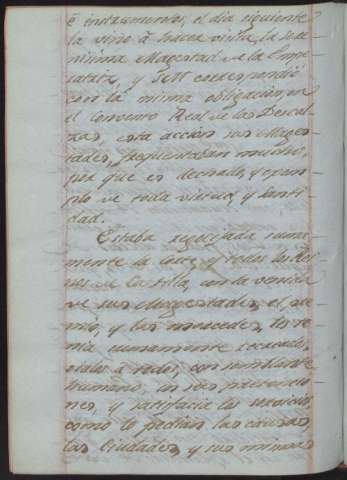 é instrumentos, el dia siguiente
la vino à hacer visita, la sere
nisima Magestad de la Empe
ratriz, y S M correspondió
con la misma obligacion, en
el Convento Real de las Descal
zas, esta accion sus Mages
tades, frequentaban mucho,
por que es dechado, y exem
plo de toda virtud, y Santi
dad.
Estaba regocijada suma
mente la Corte, y todos los Rey
nos de Castilla, con la venida
de sus Magestades, el pre
mio, y las mercedes, los te
nia sumamente
à todos, con semblante
humano, en sus
nes, y satisfacia los servicios,
como lo pedian las causas,
las Ciudades, y sus mismas